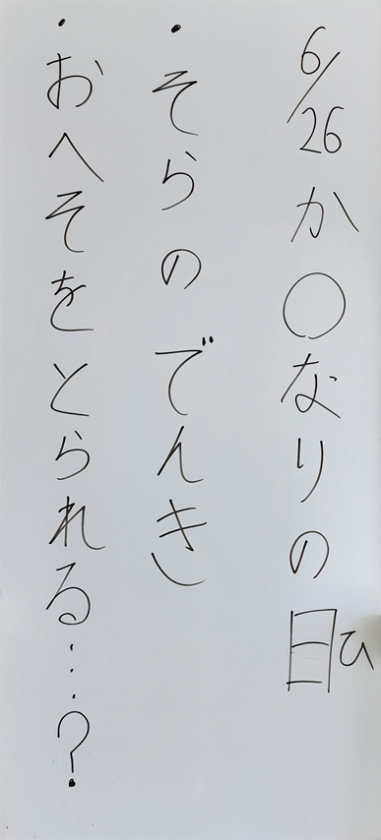 6/26 か○なりの日ひ
・そらのでんき
・おへそをとられる…?